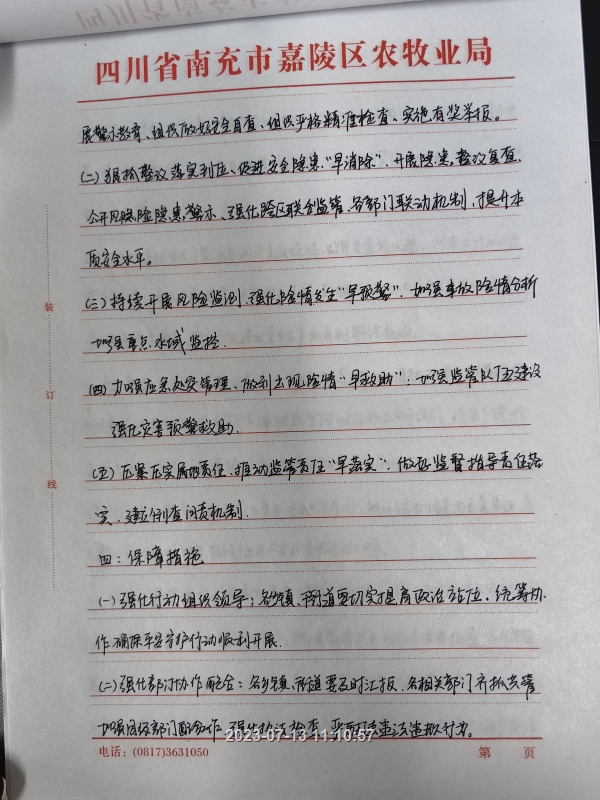 四川省南充市嘉陵区农牧业局
展警示教育、组织做好安全自查、组织严格精准检查、实施有奖举报。
(二)狠抓整改落实到位、促进安全隐患“早消除”.开展隐患整改复查、
公开风险隐患警示、强化跨区联合监管、各部门联动机制,提升本
质安全水平。
(三)持续开展风险监测、强化险情发生“早预警”.加强事故险情分析
加强重点水域监控.
(四)加强应急处突管理、做到出现险情“早救助”:加强监管队伍建设
强化灾害预警救助.
(五)压紧压实属地责任、推动监管责任“早落实”.做好监督指导责任落
实、建立倒查问责机制.
四:保障措施
(一)强化行动组织领导;各乡镇、街道要切实提高政治站位、统筹协
作确保平安守护行动顺利开展.
(二)强化部门协作配合:各乡镇、街道要及时汇报.各相关部门齐抓共管
加强同级部门配合作.强化执法检查、严厉打击违法违规行为.
装
订
线
2023-07-13 11:10:57
电话:(0817)3631050
第 页